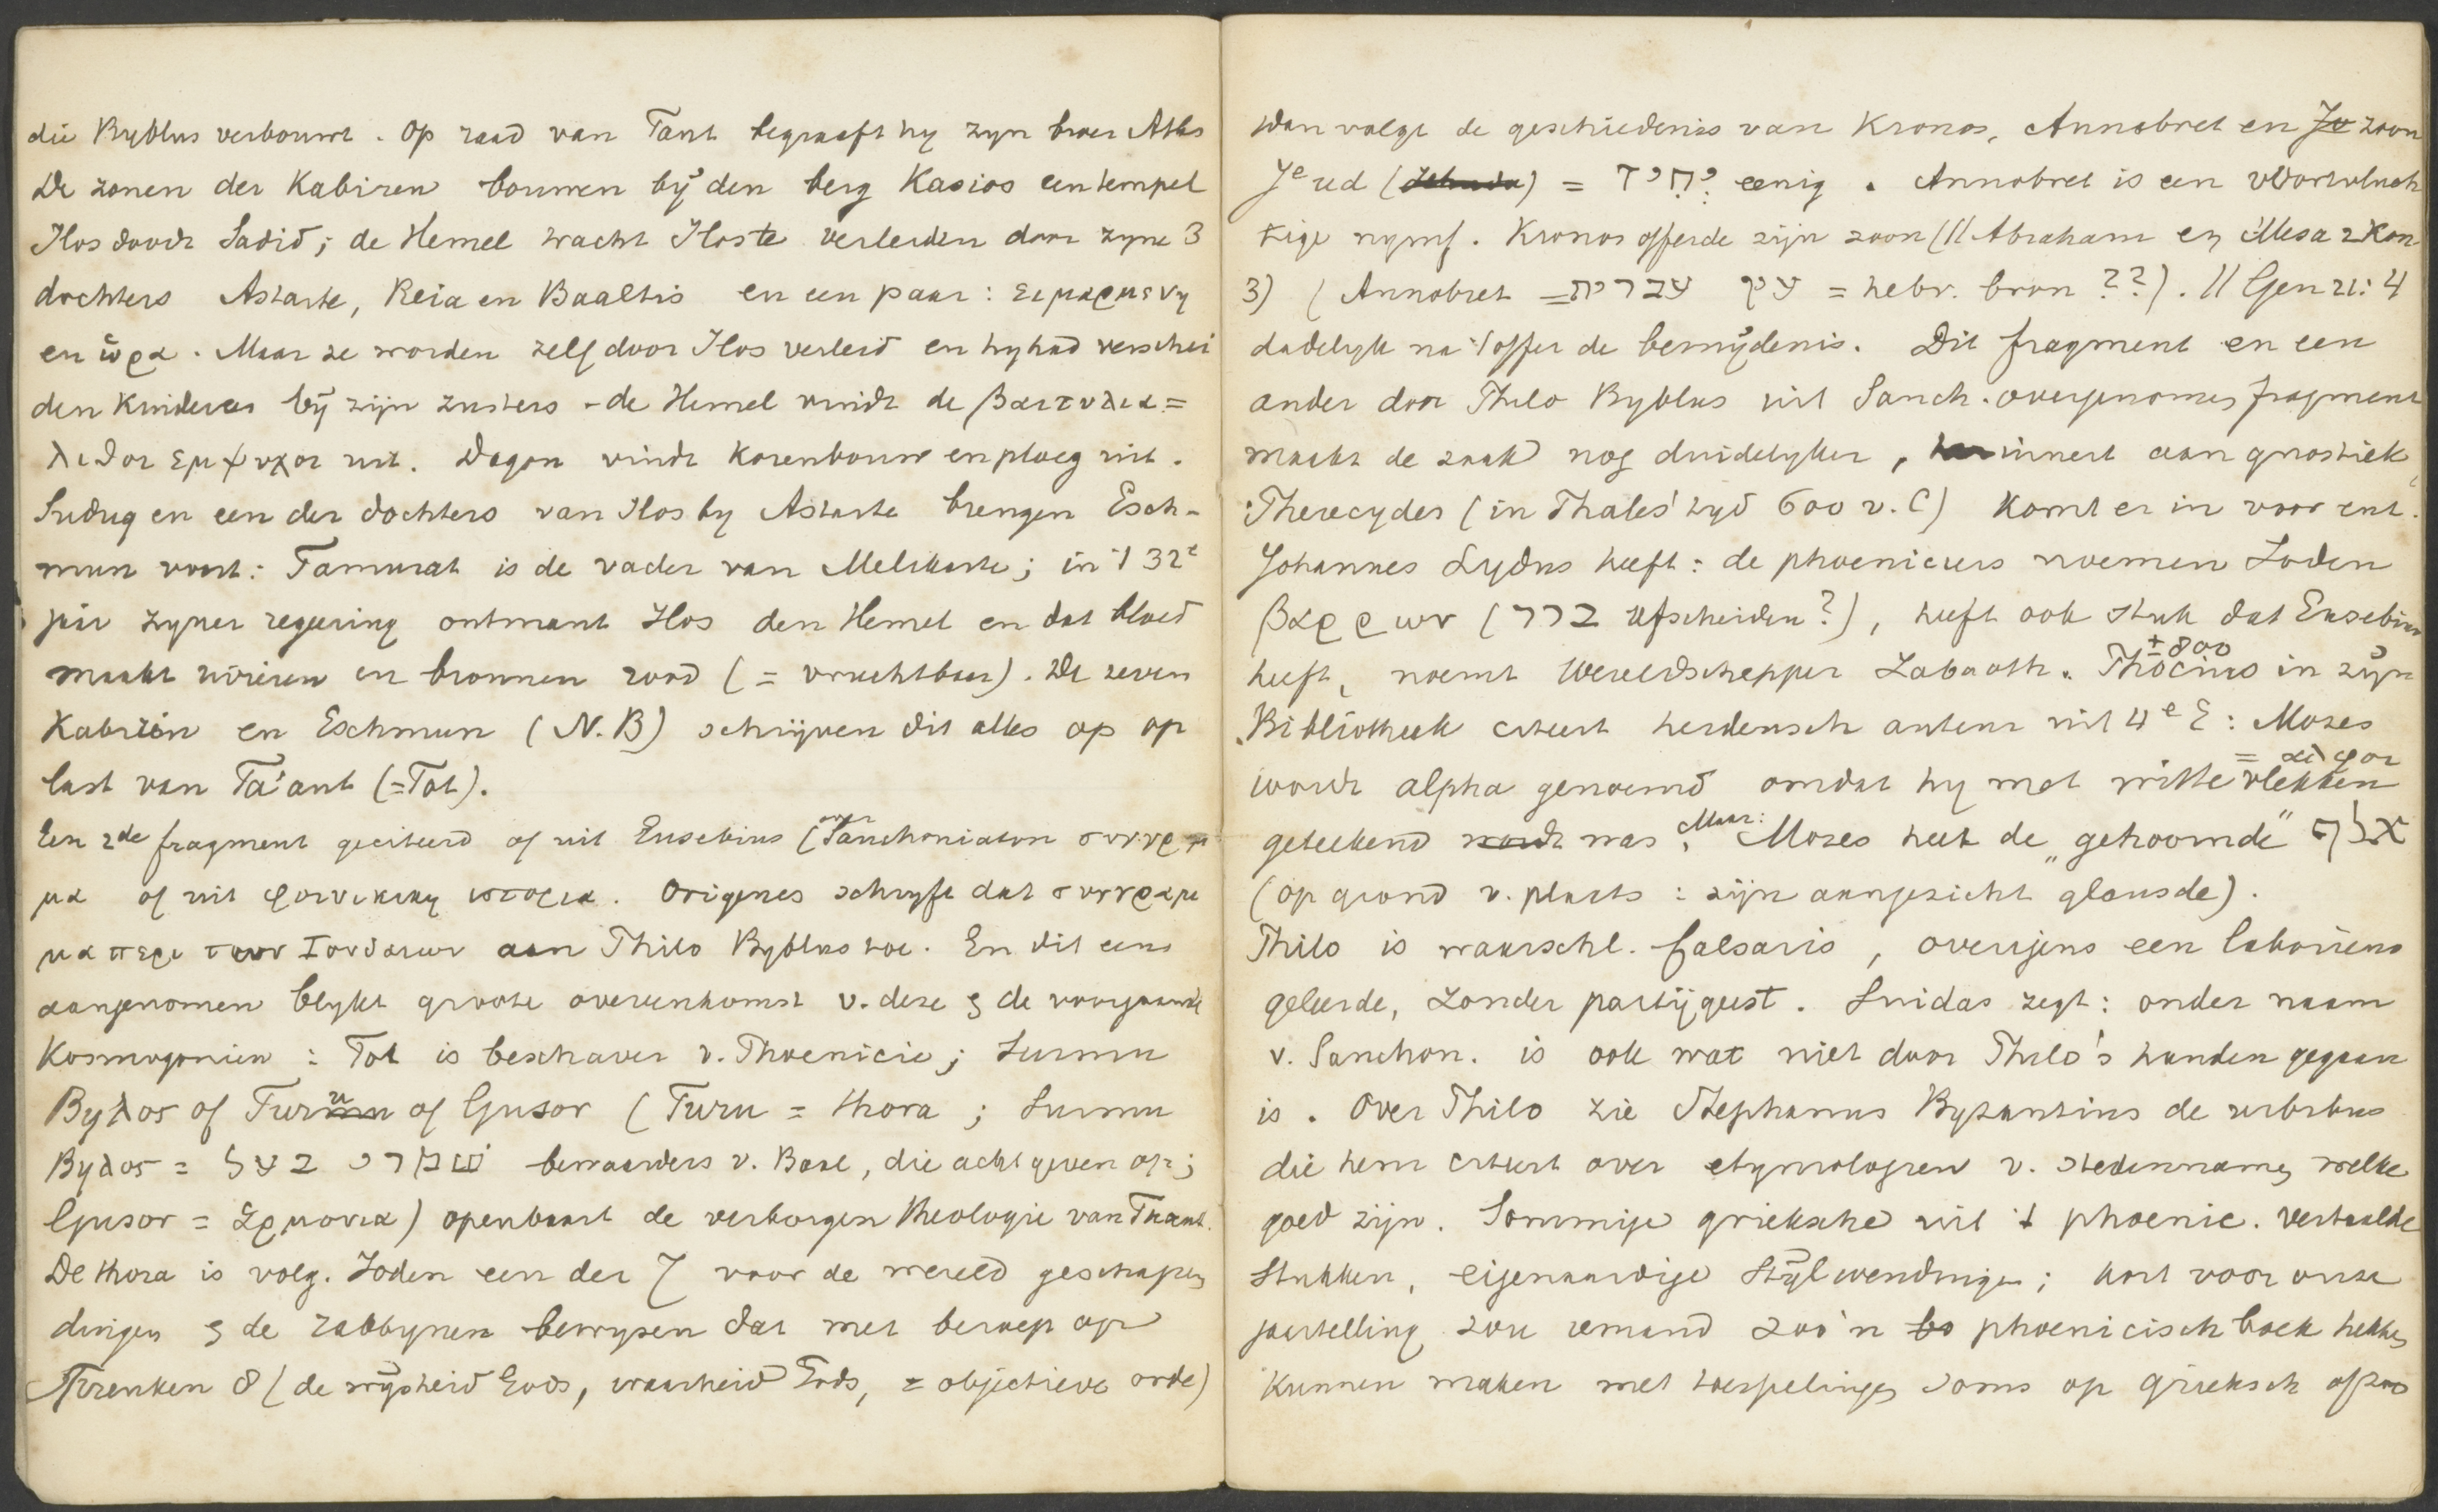 die Byblus verbouwt. Op raad van Taut begraaft hy zyn broer Atlas
De zonen der Kabiren bouwen bij den berg Kasios een tempel
Ilos doodt Sadid; de Hemel tracht Ilos te verleiden door zyne 3
dochters Astarte, Reia en Baaltis en een paar: ειμαρμενη
en ὡρα. Maar ze worden zelf door Ilos verleid en hy had verschei
den kinderen bij zijn zusters - de Hemel vindt de βαιτυλια =
λιθοι εμψυχοι uit. Dagon vindt korenbouw en ploeg uit.
Suduq en een der dochters van Ilos by Astarte brengen Esch-
mun voort: Tamurat is de vader van Melikarte; in 't 32e
jaar zyner regeering ontmant Ilos den Hemel en dat bloed
maakt rivieren en bronnen rood (= vruchtbaar). De zeven
Kabiren en Eschmun (N.B) schrijven dit alles op op
last van Ta'aut (=Tot).
Een 2de fragment geciteerd of uit Eusebius (Sanchoniaton συγγραμ
μα of uit φοινικικη ιστορια. Origenes schryft dat συγγραμ
μα περι των Ιουδαιων aan Philo Byblus toe. En dit eens
aangenomen blykt groote overeenkomst v. deze & de voorgaande
Kosmogonien: Tot is beschaver v. Phoenicie; Surmu
Byλos of Turu of Gusor (Turu = thora; Surmu
Byλos = שמרי בעל bewaarders v. Baal, die acht geven op;
Gusor = Ἑρμονια) openbaart de verborgen theologie van Thaaut.
De thora is volg. Joden een der 7 voor de wereld geschapen
dingen & de rabbynen bewyzen dat met beroep op
Spreuken 8 (de wijsheid Gods, waarheid Gods, = objectieve orde)
Dan volgt de geschiedenis van Kronos, Annobret en Je zoon
Jeeud (Jehuda) = יחיד eenig. Annobret is een voortvluch
tige nymf. Kronos offerde zijn zoon (// Abraham en Mesa 2 Kon
3) (Annobret = עין עברית = hebr. bron ??). // Gen 21:4
dadelyk na 't offer de besnijdenis. Dit fragment en een
ander door Philo Byblus uit Sanch. overgenomen fragment
maakt de zaak nog duidelyker, herinnert aan gnostiek,
Pherecydes (in Thales' tyd 600 v. C) komt er in voor enz.
Johannes Lydus heeft: de phoeniciers noemen Joden
βαρρων (ברר afscheiden?), heeft ook stuk dat Eusebius
heeft, noemt Wereldschepper Zabaoth. Phocius ±800 in zijn
Bibliotheek citeert heidensch auteur uit 4e E: Mozes
wordt alpha genoemd omdat hy met witte vlekken = αλφοι
geteekend wordt was. Maar: Mozes heet de „gehoornde" אלף
(op grond v. plaats: zijn aangezicht glansde).
Philo is waarschl. falsaris, overigens een laborieus
geleerde, zonder partijgeest. Suidas zegt: onder naam
v. Sanchon. is ook wat niet door Philo's handen gegaan
is. Over Philo zie Stephanus Byzantius de urbibus
die hem citeert over etymologien v. stedennamen welke
goed zijn. Sommige grieksche uit 't phoenic. vertaalde
stukken, eigenaardige stijlwendingen; kort voor onze
jaartelling zou iemand zoo'n bo phoenicisch boek hebben
kunnen maken met toespelingen soms op grieksch of zoo